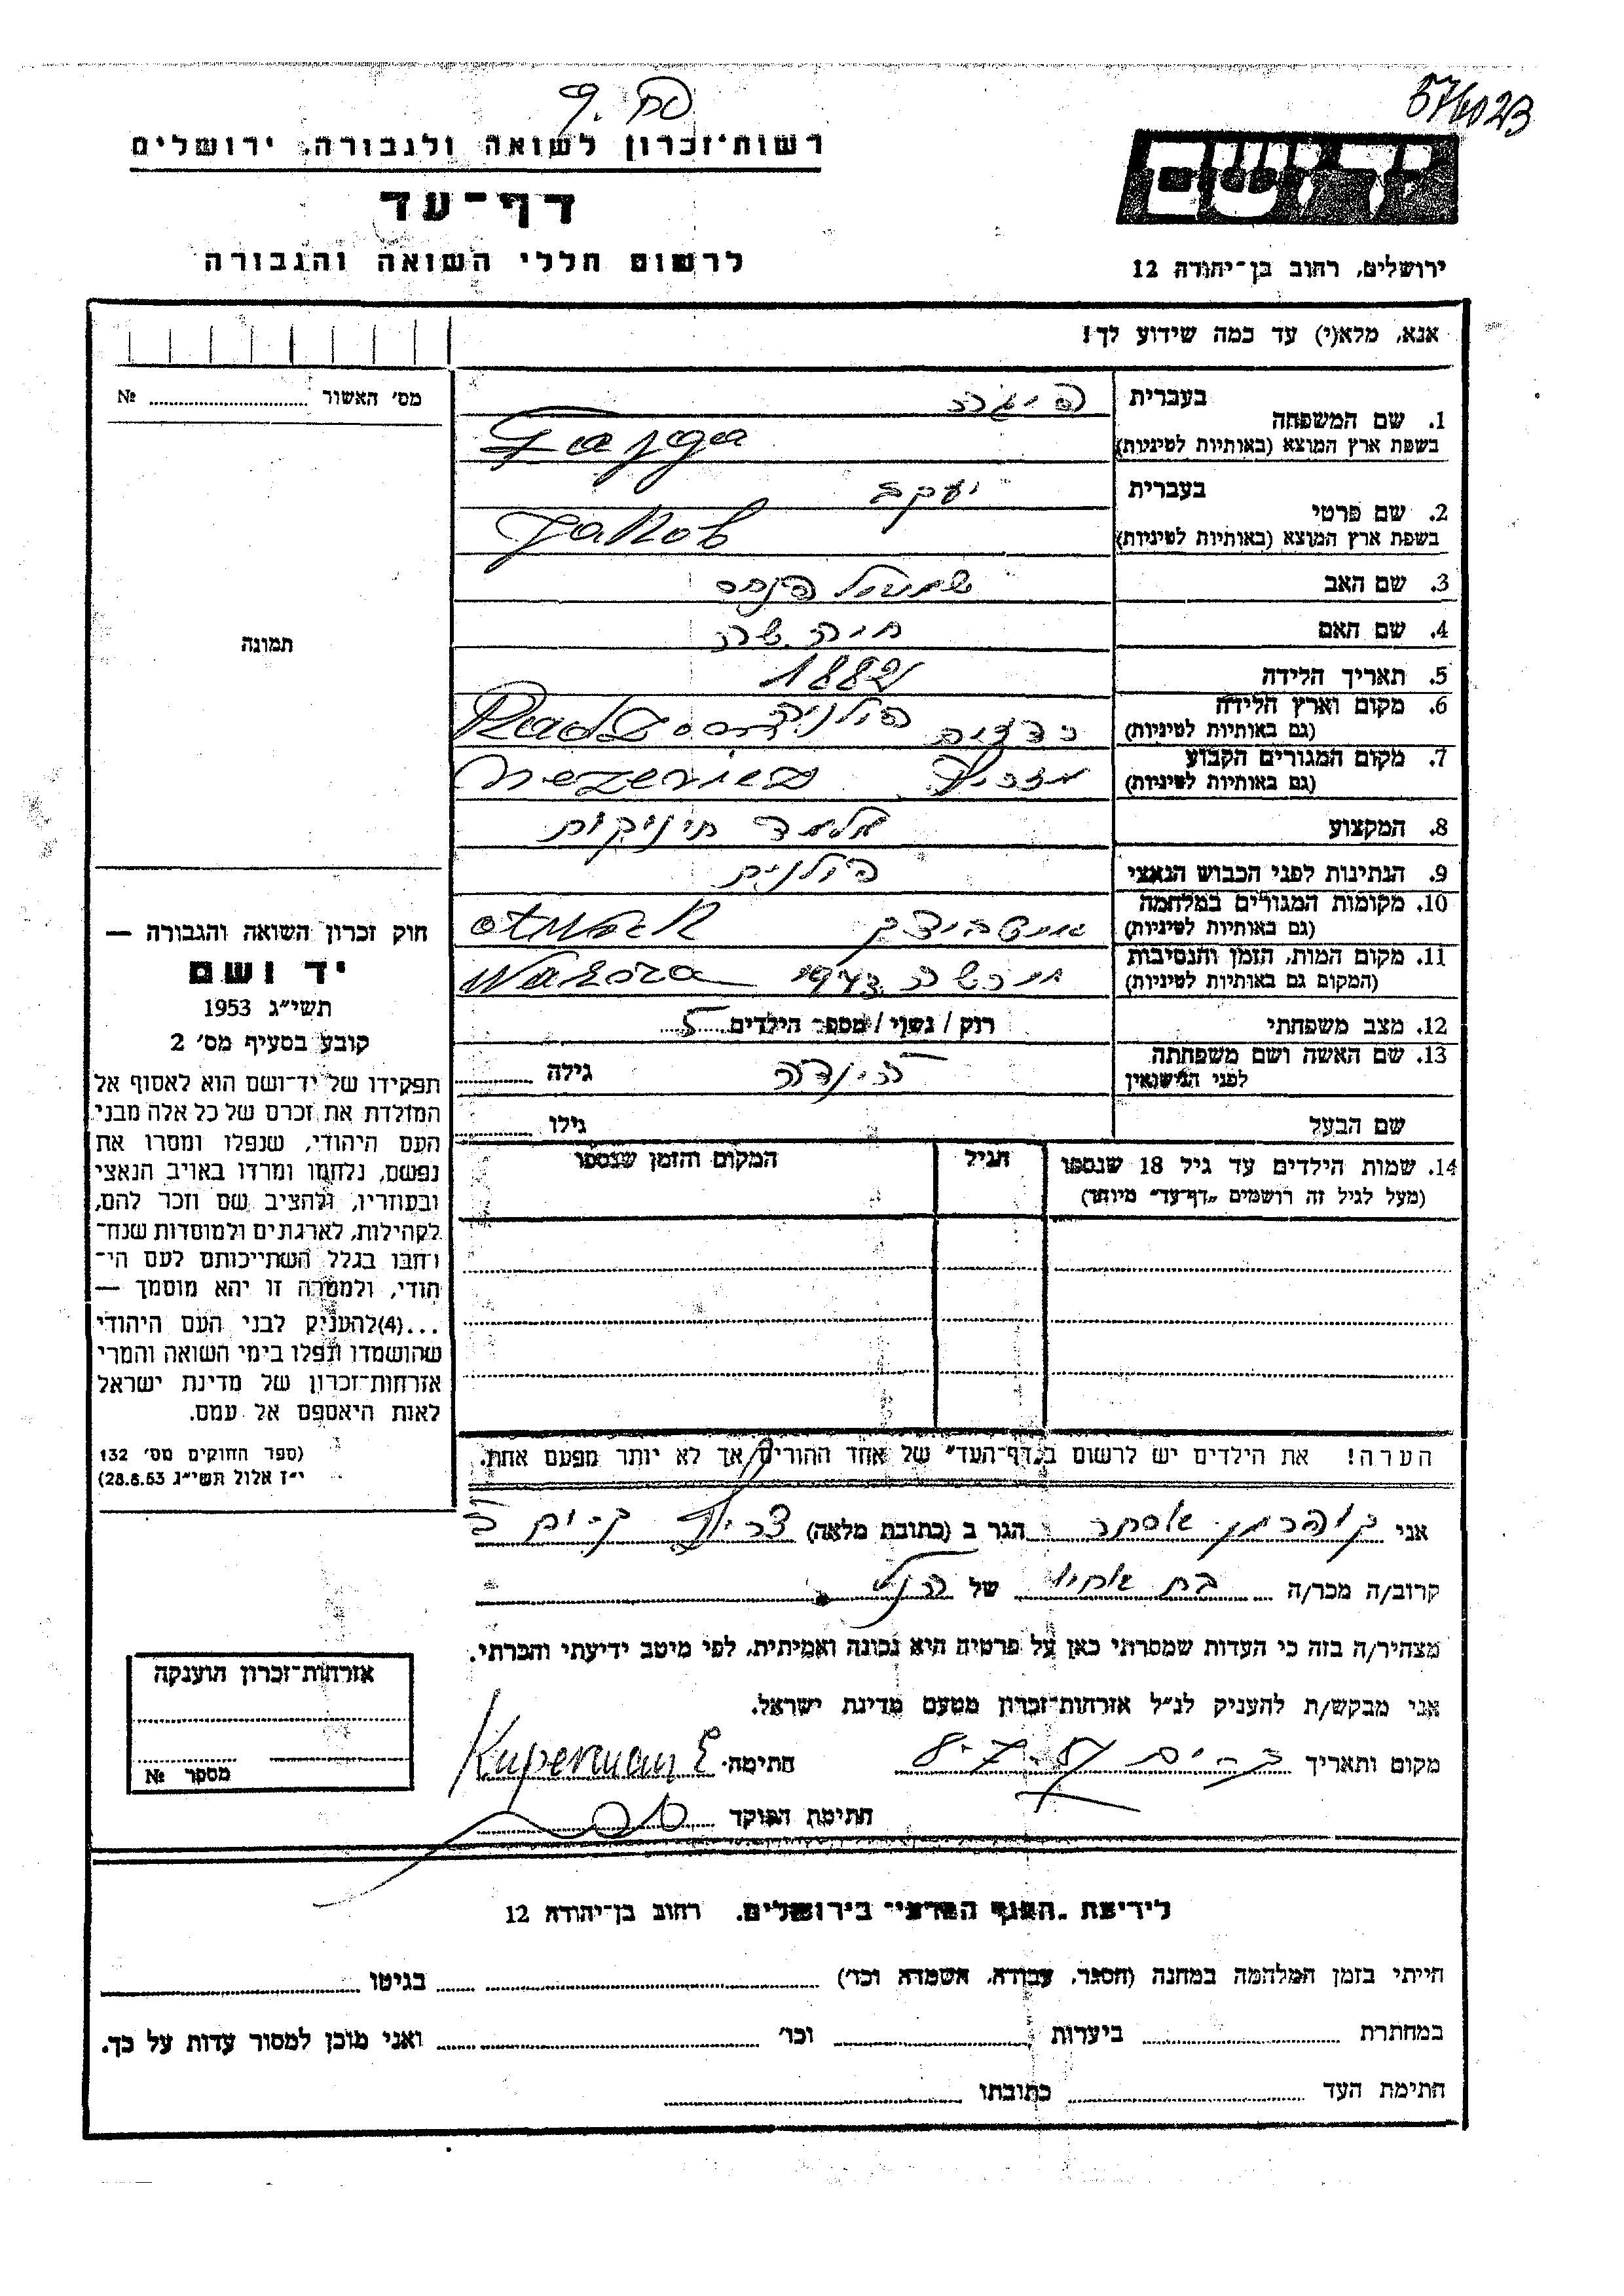 רשות־זכרון לשואה ולגבורה, ירושלים
דף־עד
לרשום חללי השואה והגבורה
יד ושם
ירושלים, רחוב בן־יהודה 12
אנא, מלא(י) עד כמה שידוע לך!
מס׳ האשור № 
תמונה
1. שם המשפחה
בעברית
בשפת ארץ המוצא (באותיות לטיניות) Fajga
2. שם פרטי
בעברית יעקב
בשפת ארץ המוצא (באותיות לטיניות) Jakob
3. שם האב שמואל
4. שם האם חיה שרה
5. תאריך הלידה 1882
6. מקום וארץ הלידה פולניה
(גם באותיות לטיניות)
7. מקום המגורים הקבוע
(גם באותיות לטיניות)
8. המקצוע מלמד תינוקות
9. הנתינות לפני הכבוש הנאצי פולנית
10. מקומות המגורים במלחמה otwock
(גם באותיות לטיניות)
11. מקום המות, הזמן והנסיבות ורשה 1943
(המקום גם באותיות לטיניות)
12. מצב משפחתי רוק / נשוי / מספר הילדים 5
13. שם האשה ושם משפחתה
לפני הנישואין גילה
שם הבעל גילו
14. שמות הילדים עד גיל 18 שנספו הגיל המקום והזמן שנספו
(מעל לגיל זה רושמים "דף־עד" מיוחד)
הערה! את הילדים יש לרשום ב"דף־העד" של אחד ההורים אך לא יותר מפעם אחת.
חוק זכרון השואה והגבורה —
יד ושם
תשי״ג 1953
קובע בסעיף מס׳ 2
תפקידו של יד־ושם הוא לאסוף אל
המולדת את זכרם של כל אלה מבני
העם היהודי, שנפלו ומסרו את
נפשם, נלחמו ומרדו באויב הנאצי
ובעוזריו, ולהציב שם וזכר להם,
לקהילות, לארגונים ולמוסדות שנח־
רבו בגלל השתייכותם לעם הי־
הודי, ולמטרה זו יהא מוסמך —
...(4) להעניק לבני העם היהודי
שהושמדו ונפלו בימי השואה והמרי
אזרחות־זכרון של מדינת ישראל
לאות היאספם אל עמם.
(ספר החוקים מס׳ 132
י״ז אלול תשי״ג 28.8.53)
אני קופרמן אסתר הגר ב (כתובת מלאה) צריף
קרוב/ה מכר/ה בת אחיו של הנ״ל
מצהיר/ה בזה כי העדות שמסרתי כאן על פרטיה היא נכונה ואמיתית, לפי מיטב ידיעתי והכרתי.
אני מבקש/ת להעניק לנ״ל אזרחות־זכרון מטעם מדינת ישראל.
מקום ותאריך 8-7-57 חתימה Kuperman E
חתימת הפוקד
אזרחות־זכרון הוענקה
מספר №
לידיעת "הגוף המרכזי" בירושלים, רחוב בן־יהודה 12
הייתי בזמן המלחמה במחנה (הסגר, עבודה, השמדה וכו׳) בגיטו
במחתרת ביערות וכו׳ ואני מוכן למסור עדות על כך.
חתימת העד כתובתו